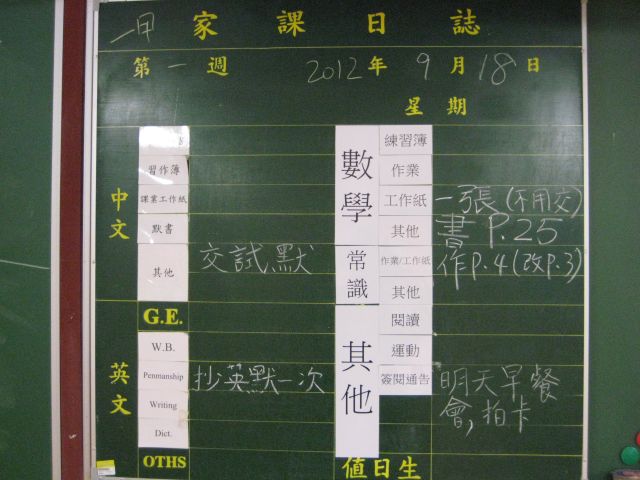 一甲 家課日誌
第一週 2012年9月18日
星期
中文
習作簿
課業工作紙
默書
其他 交試默
G.E.
英文
W.B.
Penmanship 抄英默一次
Writing
Dict.
OTHS
數學
練習簿
作業
工作紙 一張(不用交)
其他 書P.25
常識
作業/工作紙 作P.4(改P.3)
其他
其他
閱讀
運動
簽閱通告 明天早餐
會,拍卡
值日生